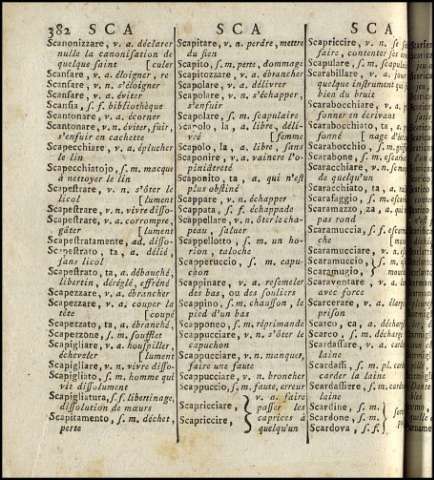 382 S C A
S C A
S C A
Scanonizzare, v. a. déclarer
nulle la canonisation de
quelque saint [culer
Scansare, v. a. éloigner, re
Scansare, v. n. s'éloigner
Scansare, v. a. éviter
Scansia, s. f. bibliothèque
Scantonare, v. a. écorner
Scantonare, v. n. éviter, fuir,
s'enfuir en cachette
Scapecchiare, v. a. éplucher
le lin
Scapecchiatojo, s. m. macque
à nettoyer le lin
Scapestrare, v. n. s'ôter le
licol [lument
Scapestrare, v. n. vivre disso-
Scapestrare, v. a. corrompre
gâter [lument
Scapestratamente, ad. disso-
Scapestrato, ta, a. délié,
sans licol
Scapestrato, ta, a. débauché,
libertin, déréglé, effréné
Scapezzare, v. a. ébrancher
Scapezzare, v. a. couper la
tête [coupé
Scapezzato, ta, a. ébranché,
Scapezzone, s. m. soufflet
Scapigliare, v. a. houspiller,
écheveler [lument
Scapigliare, v. n. vivre disso-
Scapigliato, s. m. homme qui
vit dissolument
Scapigliatura, s. f. libertinage,
dissolution de mœurs
Scapitamento, s. m. déchet,
perte
Scapitare, v. n. perdre, mettre
du sien
Scapito, s. m. perte, dommage
Scapitozzare, v. a. ébrancher
Scapolare, v. a. délivrer
Scapolare, v. n. s'échapper,
s'enfuir
Scapolare, s. m. scapulaire
Scapolo, la, a. libre, déli-
vré [femme
Scapolo, la, a. libre, sans
Scaponire, v. a. vaincre l'o-
piniâtreté
Scaponito, ta, a. qui n'est
plus obstiné
Scappare, v. n. échapper
Scappata, s. f. échappade
Scappellare, v. n. ôter le cha-
peau, saluer
Scappellotto, s. m. un ho-
rion, taloche
Scapperuccio, s. m. capu-
chon
Scappinare, v. a. resemeler
des bas, ou des souliers
Scappino, s. m. chausson, le
pied d'un bas
Scapponeo, s. m. réprimande
Scappucciare, v. n. s'ôter le
capuchon
Scappucciare, v. n. manquer,
faire une faute
Scappucciare, v. n. broncher
Scappuccio, s. m. faute, erreur
Scapricciare,
Scapriccire,
v. a. faire
passer les
caprices à
quelqu'un
Scapriccire, v. n. se
faire, contenter ses
Scapulare, s. m. scapul
Scarabillare, v. a. jouer
quelque instrument qui
bien du bruit
Scarabocchiare, v.
fonner en écrivant
Scarabocchiato, ta, a.
fonné
Scarabocchio, s. m.
Scarabone, s. m. escar
Scaracchiare, v. n. se
de quelqu'un
Scaracchiato, ta, a.
Scarafaggio, s. m. escar
Scaramazzo, za, a. qui
pas rond
Scaramuccia, s. f. escar
che
Scaramucciare, v. n.
Scaramuccio,
Scaramugio,
Scaraventare, v. a.
avec force
Scarcerare, v. a. élarg
prison
Scarco, ca, a. décharg
Scarco, s. m. décharge
Scardassare, v. a. carder
laine
Scardassi, s. m. pl.
carder la laine
Scardassiere, s. m. carde
laine
Scardine, s. m.
Scardone, s. m.
Scardova, s. f.